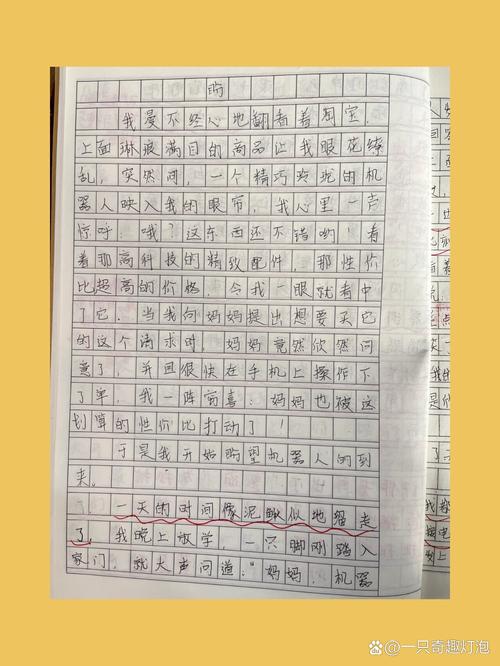 盼
我漫不经心地翻看着淘宝，
上面琳琅满目的商品让我眼花缭
乱，突然间，一个精巧玲珑的机
器人映入我的眼帘，我心里一声
惊呼：哦？这东西还不错哟！看
着那高科技的精致配件，那性价
比超高的价格，令我一眼就看中
了它．当我向妈妈提出想要买它
的这个请求时，妈妈竟然欣然同
意了，并且很快在手机上操作下
了单，我一阵窃喜：妈妈也被这
划算的性价比打动了！
于是我开始盼望机器人的到
来．
一天的时间像泥鳅似地溜走
了，我晚上放学，一只脚刚踏入
家门，就大声问道："妈妈，机器
一只奇趣灯泡